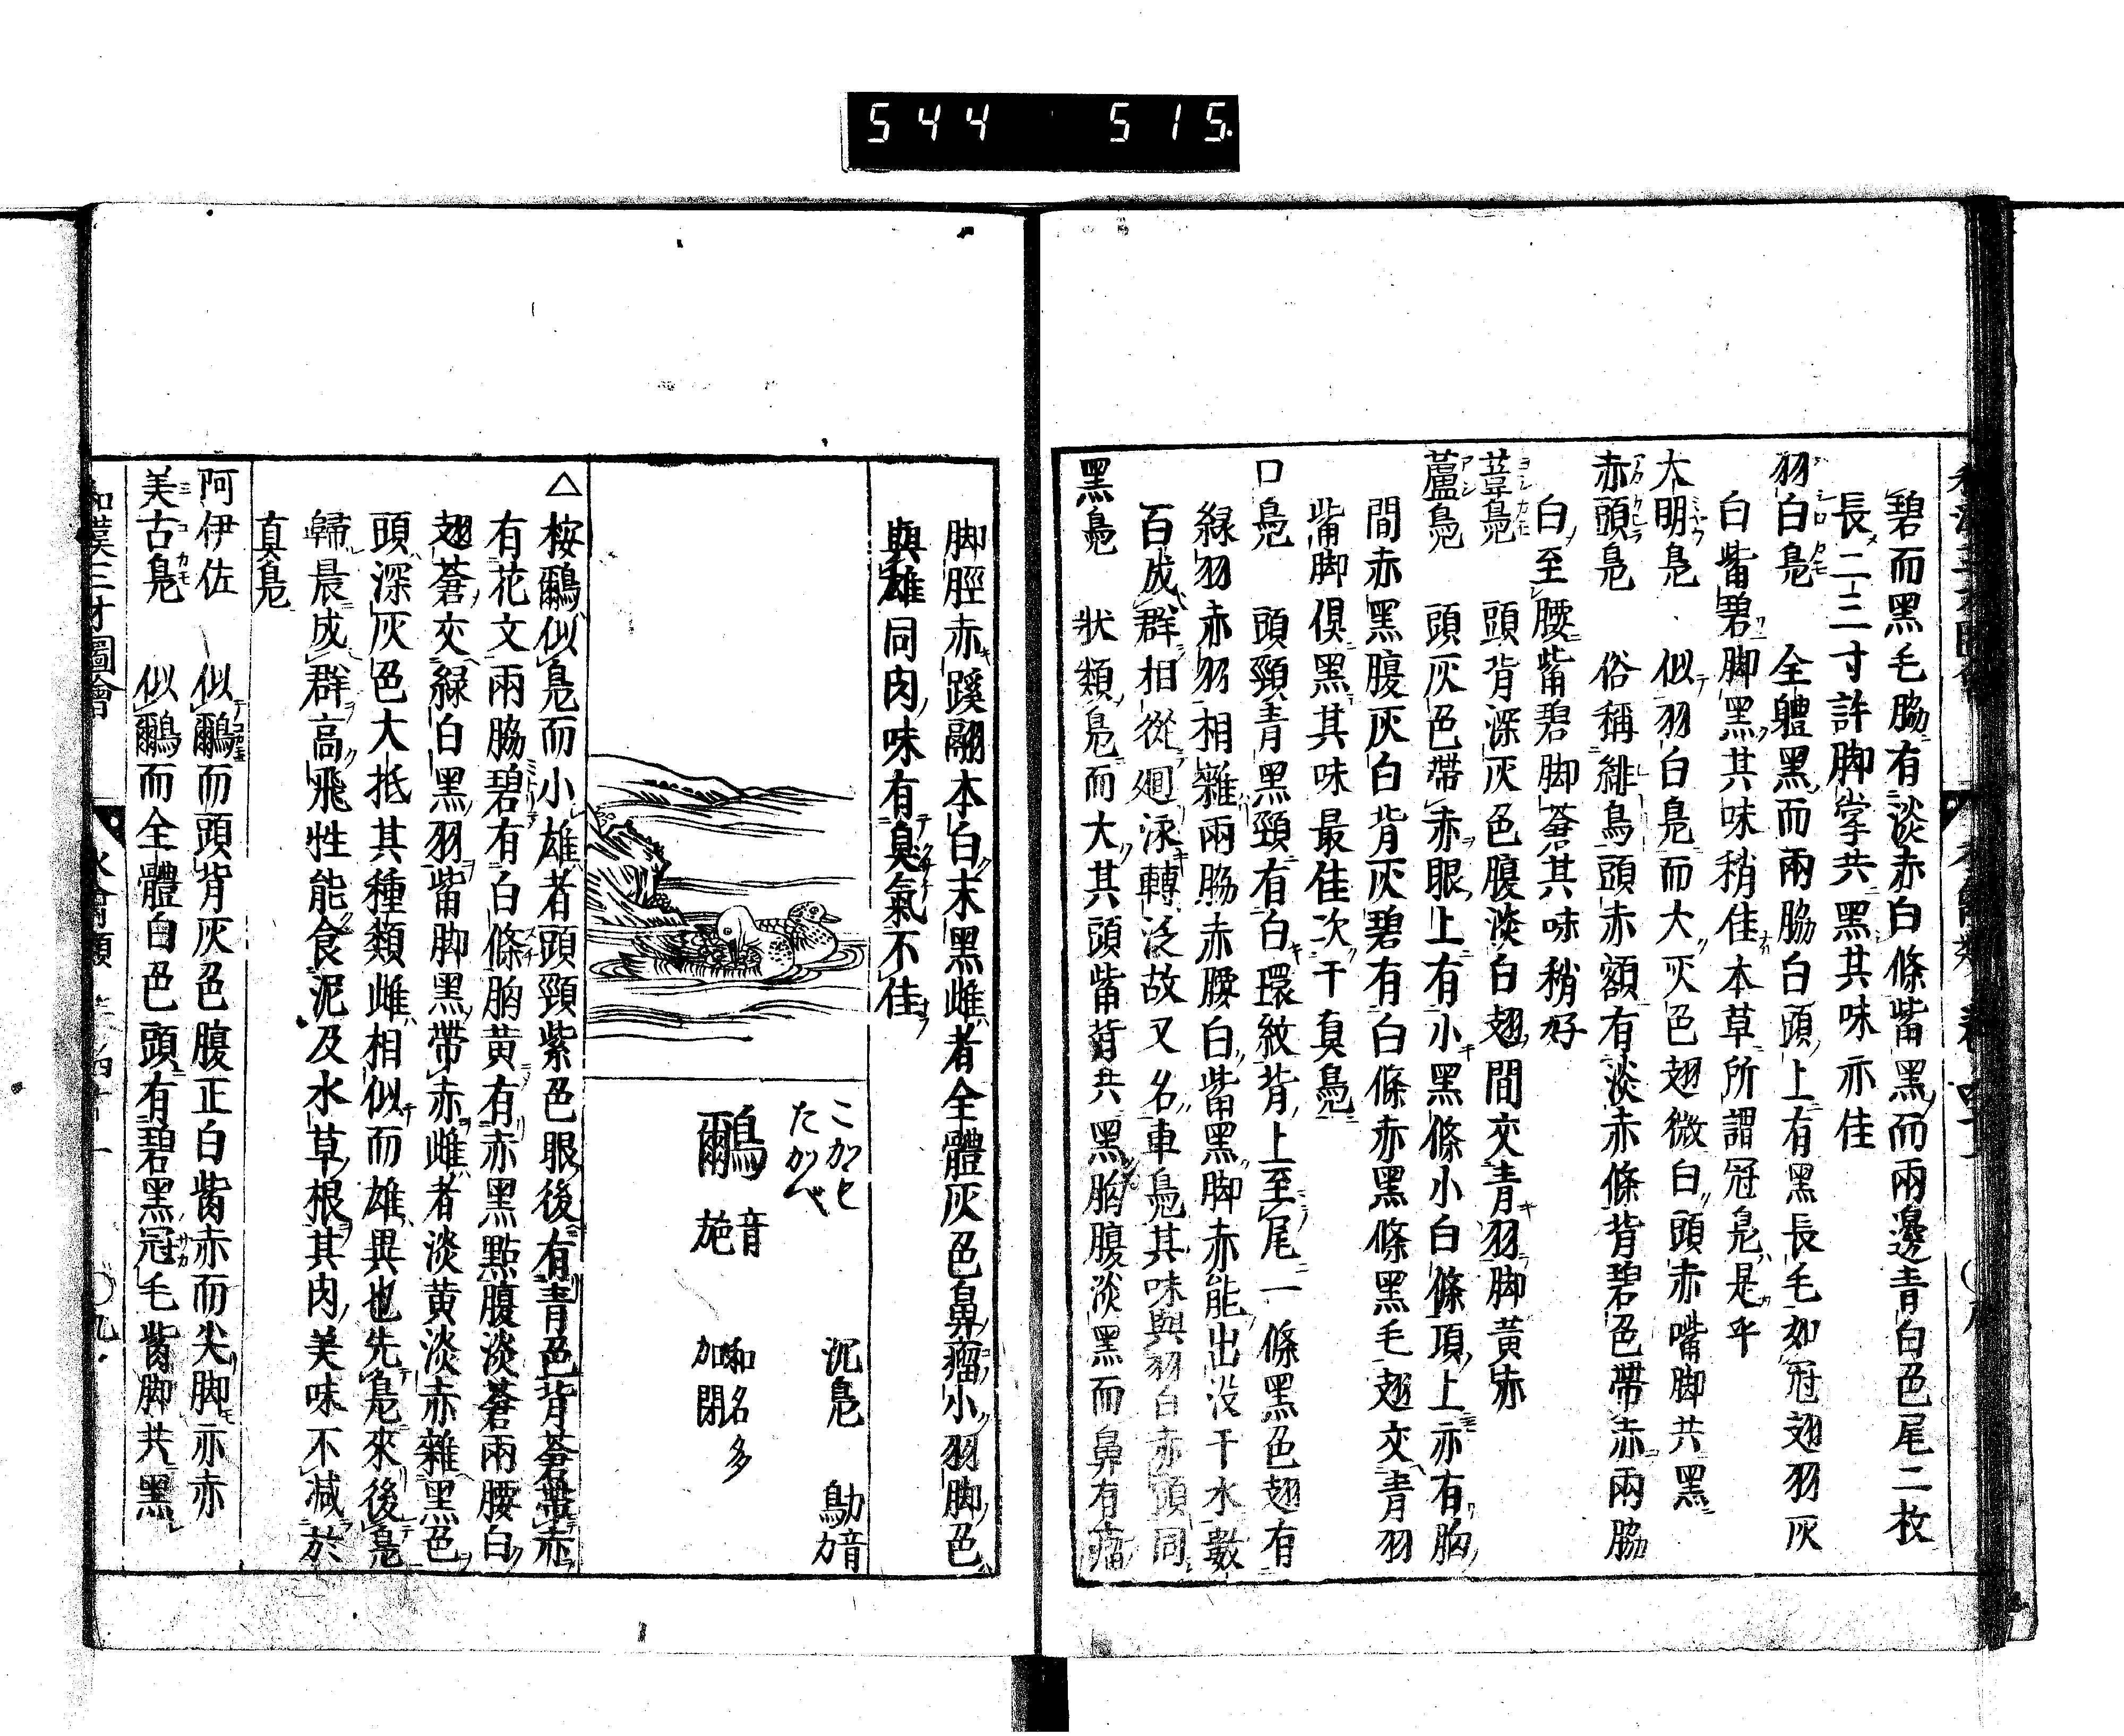 544 515
碧而黑毛脇有淡赤白條觜黑而兩邊青白色尾二枚
長二三寸許脚掌共黑其味亦佳
羽白鳧 全體黑而兩脇白頭上有黑長毛如冠翅羽灰
白觜碧脚黑其味稍佳本草所謂冠鳧是乎
大明鳧 似羽白鳧而大灰色翅微白頭赤嘴脚共黑
赤頭鳧 俗稱緋鳥頭赤額有淡赤條背碧色帶赤兩脇
白至腰觜碧脚蒼其味稍好
葦鳧 頭背深灰色腹淡白翅間交青羽脚黃赤
蘆鳧 頭灰色帶赤眼上有小黑條小白條項上亦有胸
間赤黑腹灰白背灰碧有白條赤黑條黑毛翅交青羽
觜脚俱黑其味最佳次于真鳧
口鳧 頭頸青黑頸有白環紋背上至尾一條黑色翅有
緑羽赤羽相雜兩脇赤腰白觜黑脚赤能出没于水數
百成群相從𢌞泳轉泛故又名車鳧其味與羽白赤頭同
黑鳧 狀類鳧而大其頭觜背共黑胸腹淡黑而鼻有瘤
脚脛赤蹼翮本白末黑雌者全體灰色鼻瘤小羽脚色
與雄同肉味有臭氣不佳
こがも
たかべ
沉鳧 鳨音力
鸍 音施
和名多加閉
△桉鸍似鳧而小雄者頭頸紫色眼後有青色背蒼帶赤
有花文兩脇碧有白條胸黃有赤黑點腹淡蒼兩腰白
翅蒼交緑白黑羽觜脚黑帶赤雌者淡黃淡赤雜黑色
頭深灰色大抵其種類雌相似而雄異也先鳧來後鳧
歸晨成群高飛性能食泥及水草根其肉美味不減於
真鳧
阿伊佐 似鸍而頭背灰色腹正白觜赤而尖脚亦赤
美古鳧 似鸍而全體白色頭有碧黑冠毛觜脚共黑
和漢三才圖會 水禽類 四十一 ○九